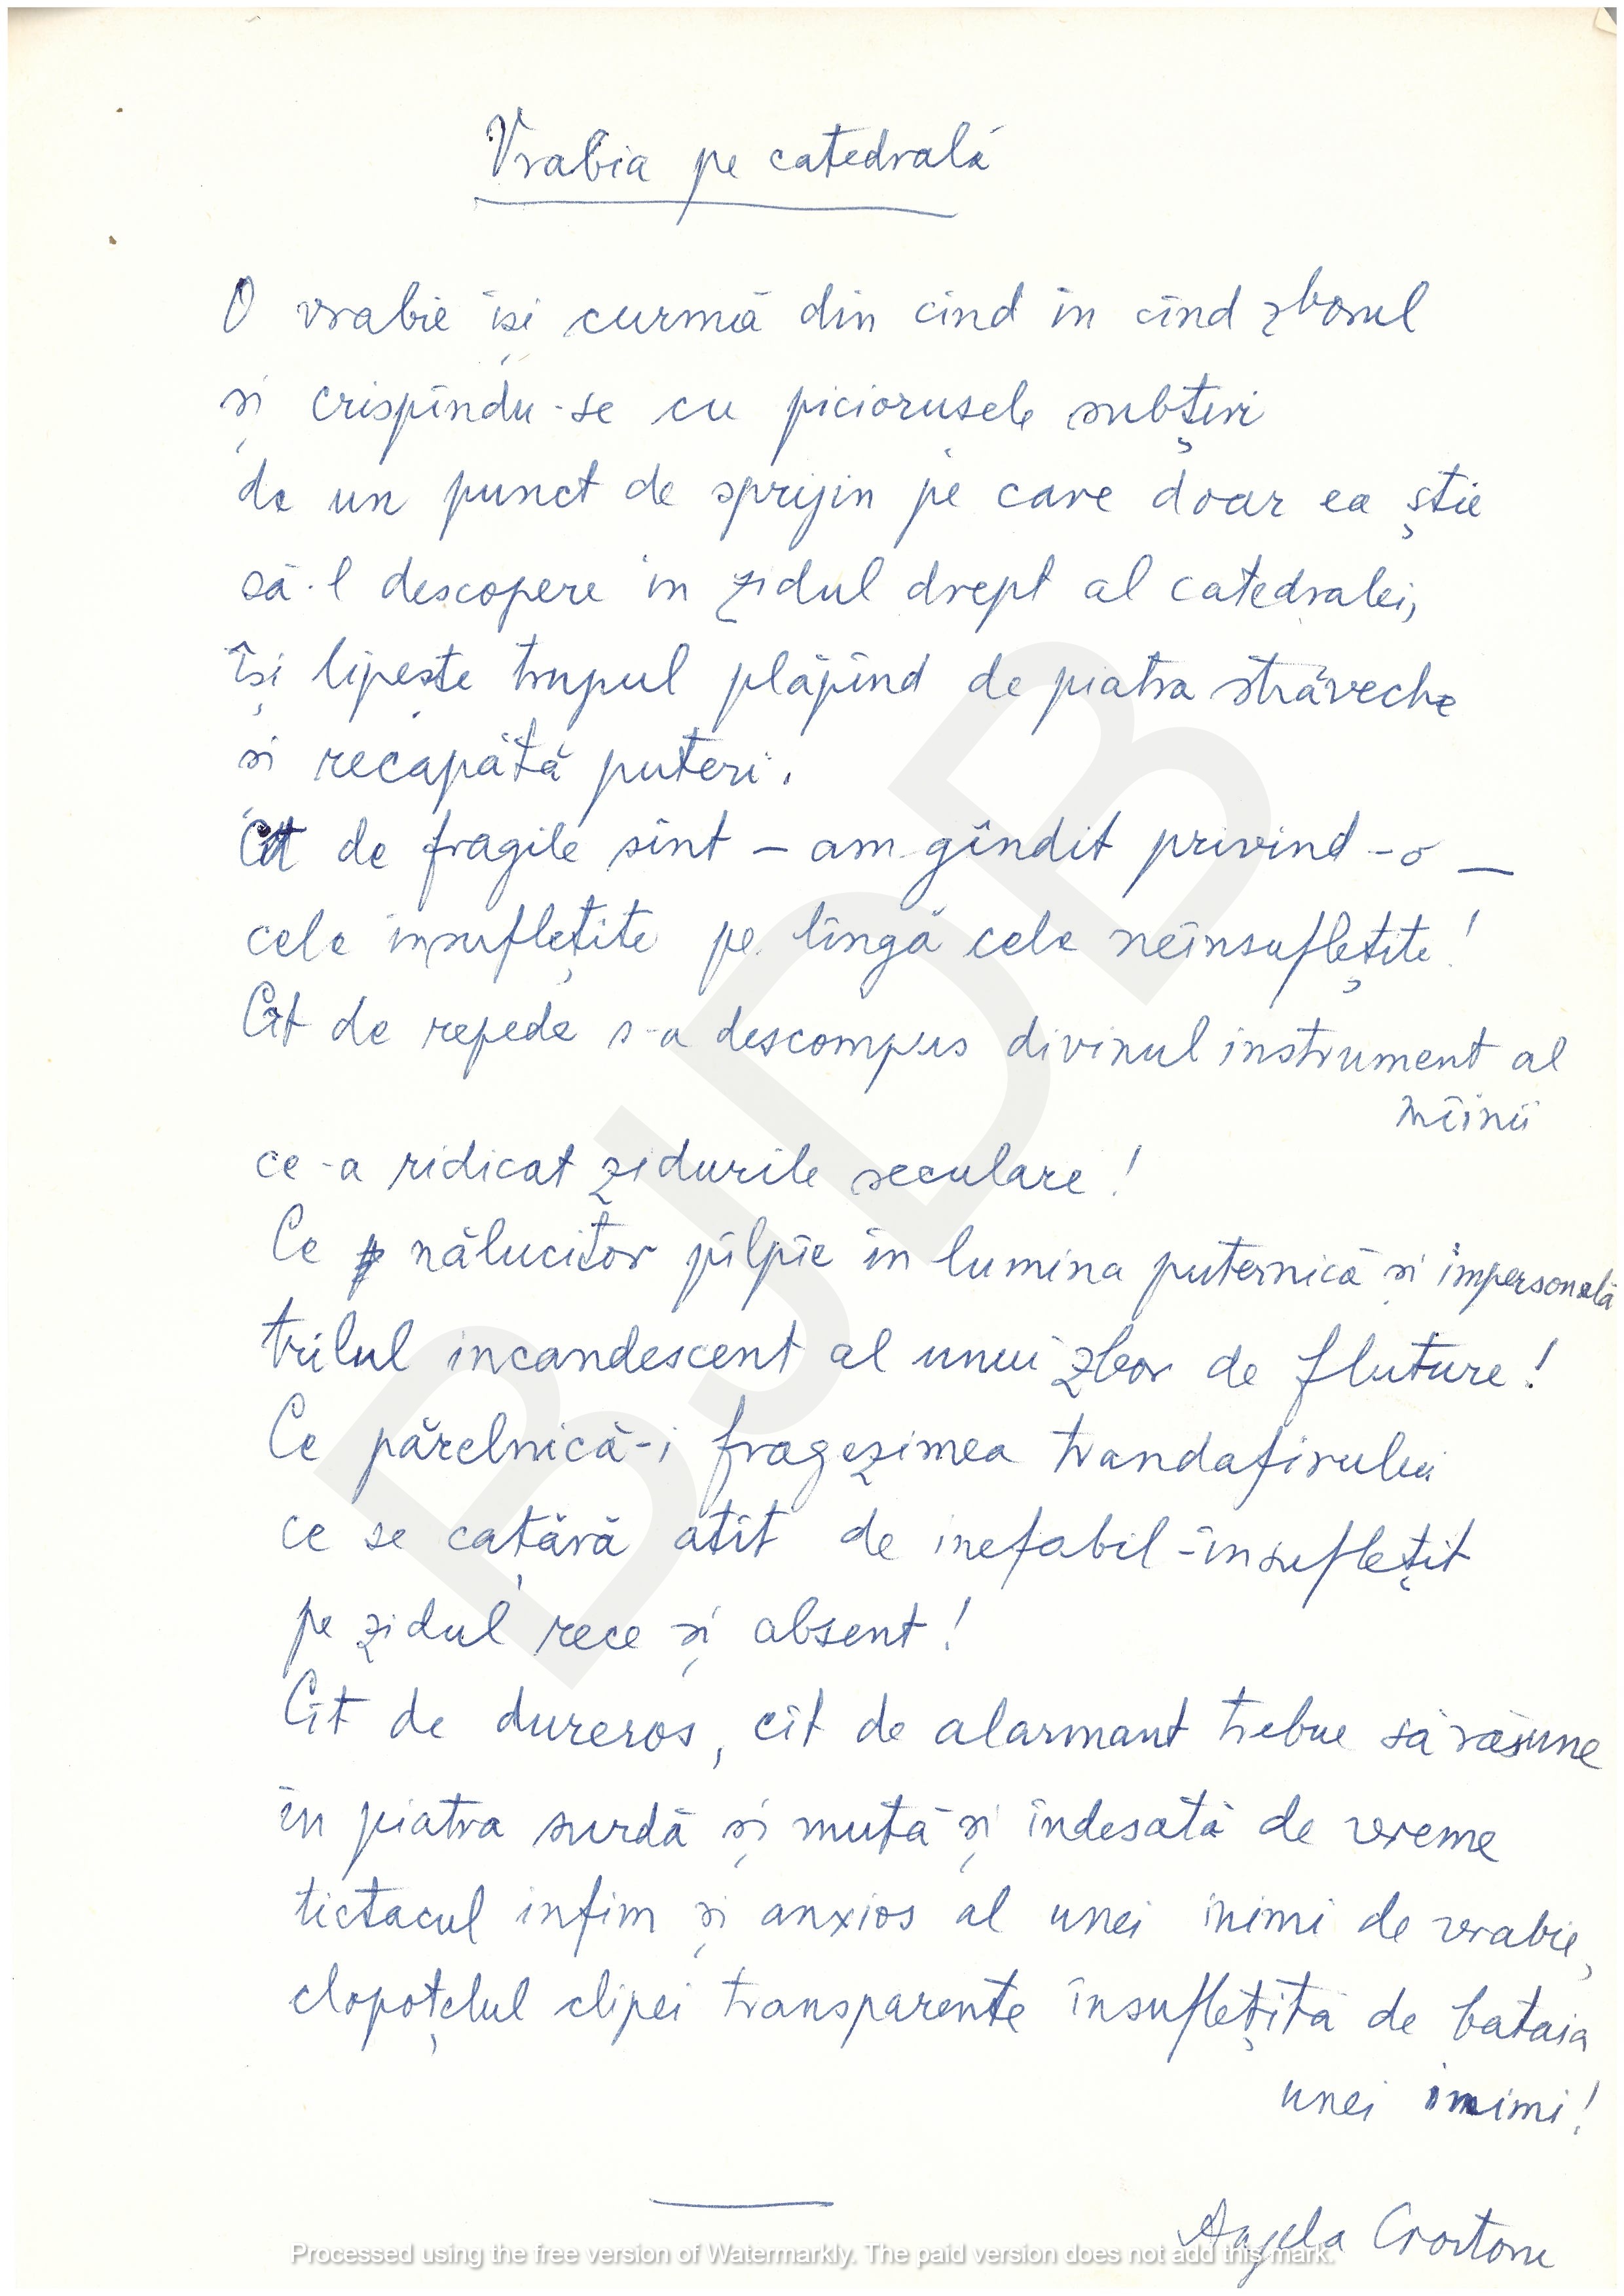 Vrabia pe catedrală
O vrabie își curmă din cînd în cînd zborul
și crispîndu-se cu piciorușele subțiri
de un punct de sprijin pe care doar ea știe
să-l descopere în zidul drept al catedralei,
își lipește trupul plăpînd de piatra străveche
și recapătă puteri.
Cît de fragile sînt – am gîndit privind-o –
cele însuflețite pe lîngă cele neînsuflețite!
Cît de repede s-a descompus divinul instrument al
mîinii
ce-a ridicat zidurile seculare!
Ce nălucitor pîlpîie în lumina puternică și impersonală
trilul incandescent al unui zbor de fluture!
Ce părelnică-i fragezimea trandafirului
ce se cațără atît de inefabil-însuflețit
pe zidul rece și absent!
Cît de dureros, cît de alarmant trebue să răsune
în piatra surdă și mută și îndesată de vreme
tictacul infim și anxios al unei inimi de vrabie,
clopoțelul clipei transparente însuflețită de bataia
unei inimi!
Angela Croitoru
BJDB
Processed using the free version of Watermarkly. The paid version does not add this mark.